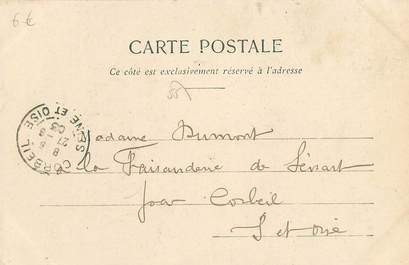 6€
CARTE POSTALE
Ce côté est exclusivement réservé à l'adresse
CORBEIL
SEINE ET OISE
Madame Dumont
à la Faisanderie de Sénart
par Corbeil
S et oise